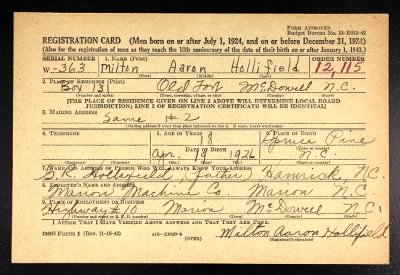 Form Approved
Budget Bureau No. 33-R012-42
REGISTRATION CARD (Men born on or after July 1, 1924, and on or before December 31, 1924)
(Also for the registration of men as they reach the 18th anniversary of the date of their birth on or after January 1, 1943.)
SERIAL NUMBER 1. NAME (Print) ORDER NUMBER
W-363 Milton Aaron Hollifield 12,115
(First) (Middle) (Last)
2. PLACE OF RESIDENCE (Print)
Box 131 Old Fort McDowell N.C.
(Town, township, village, or city) (County) (State)
[THE PLACE OF RESIDENCE GIVEN ON LINE 2 ABOVE WILL DETERMINE LOCAL BOARD
JURISDICTION; LINE 2 OF REGISTRATION CERTIFICATE WILL BE IDENTICAL]
3. MAILING ADDRESS
Same # 2
[Mailing address if other than place indicated on line 2. If same, insert word same]
4. TELEPHONE 5. AGE IN YEARS 6. PLACE OF BIRTH
8 Spruce Pine
DATE OF BIRTH (Town or county)
Apr 19 1926 N.C.
(Exchange) (Number) (Mo.) (Day) (Yr.) (State or country)
7. NAME AND ADDRESS OF PERSON WHO WILL ALWAYS KNOW YOUR ADDRESS
Hollifield, father, N.C.
8. EMPLOYER'S NAME AND ADDRESS
Marion Machine Co Marion N.C.
9. PLACE OF EMPLOYMENT OR BUSINESS
Highway #10 Marion McDowell N.C.
(Number and street or R. F. D. number) (Town) (County) (State)
I AFFIRM THAT I HAVE VERIFIED ABOVE ANSWERS AND THAT THEY ARE TRUE.
DSS Form 1 (Rev. 11-16-42) (OVER) Milton Aaron Hollifield
(Registrant's signature)